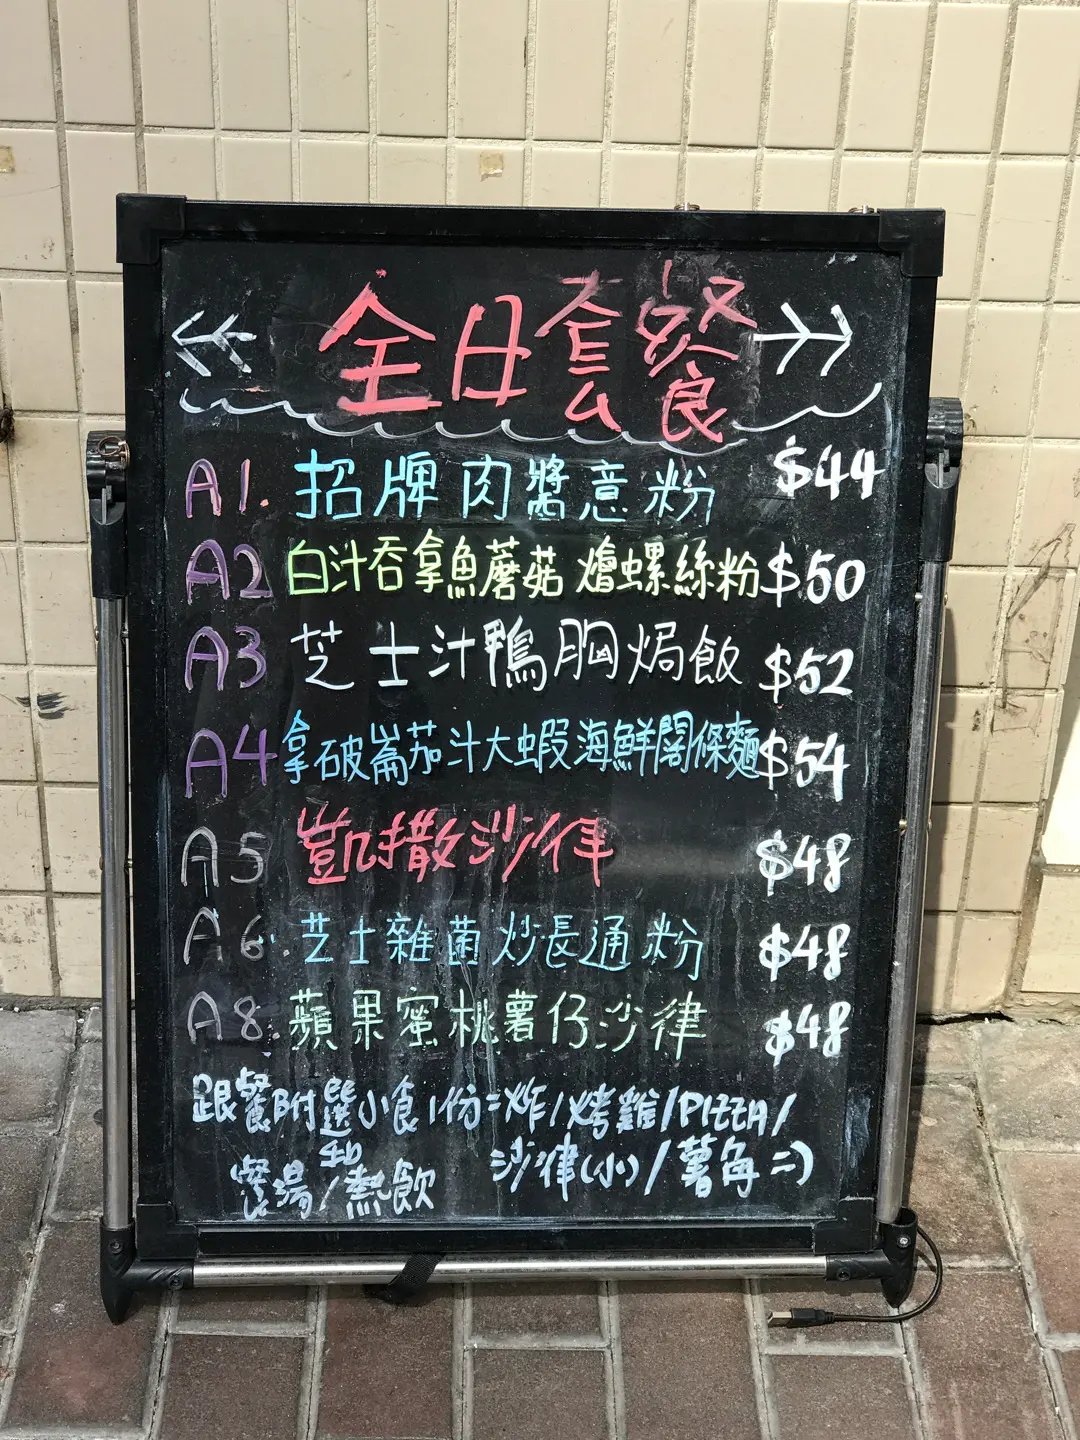 全日套餐
A1. 招牌肉醬意粉 $44
A2 白汁吞拿魚蘑菇燴螺絲粉 $50
A3 芝士汁鴨胸焗飯 $52
A4 拿破崙茄汁大蝦海鮮闊條麵 $54
A5 凱撒沙律 $48
A6. 芝士雜菌炒長通粉 $48
A8. 蘋果蜜桃薯仔沙律 $48
跟餐附選小食1份=炸/烤雞/PIZZA/
沙律(小)/薯角=)
餐湯/熱飲